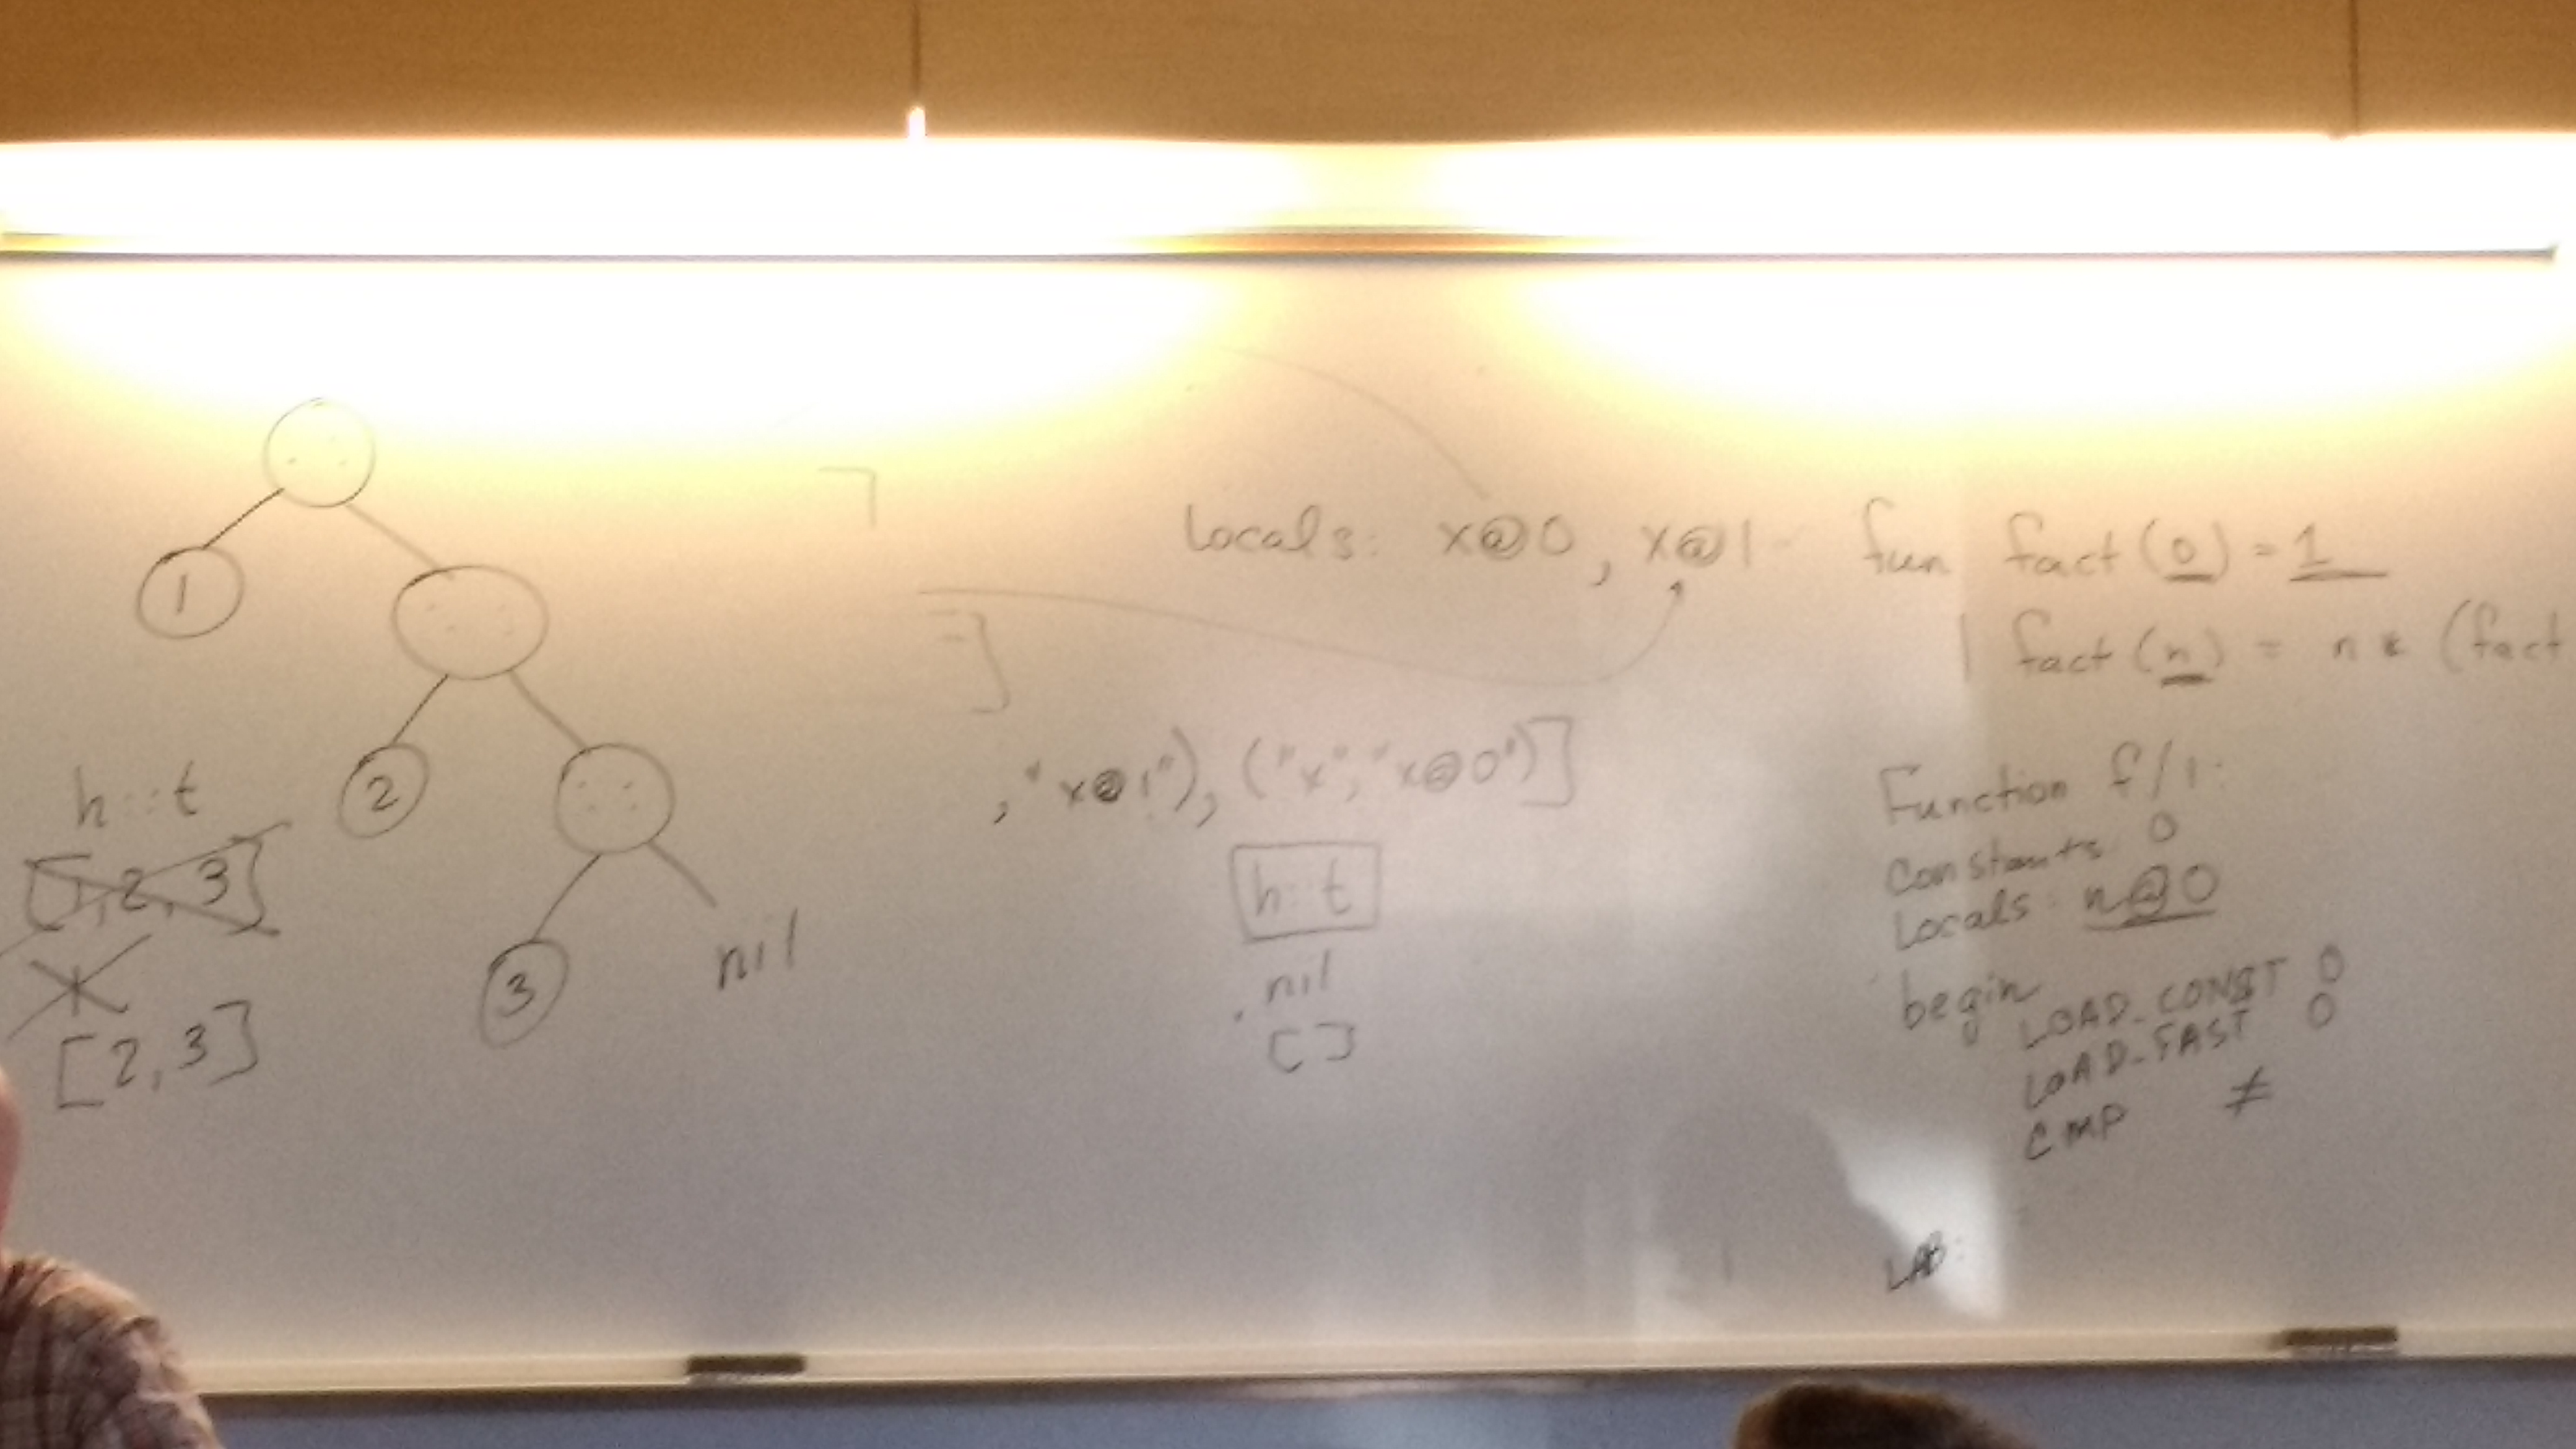 ::
1
::
2
::
3
nil
h::t
[1,2,3]
[2,3]
Locals: x@0, x@1
,"x@1"), ("x","x@0")]
h::t
nil
[]
fun fact(0) = 1
| fact(n) = n * (fact
Function f/1:
Constants: 0
Locals: n@0
begin
LOAD_CONST 0
LOAD_FAST 0
CMP ≠
LAB: